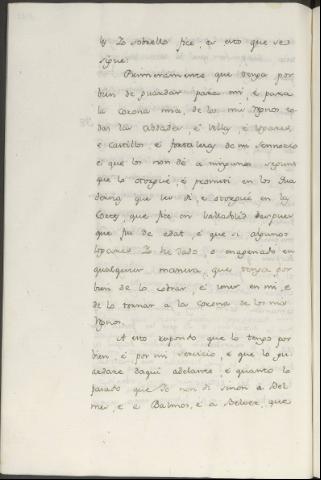 Yo sobrello fice es esto que se
sigue.
Primeramente que tenga por
bien de guardar para mi, e para
la corona mia de los mis Regnos to
das las Cibdades, e Villas, e Logares,
e castillos, e fortalezas de mi Sennorio
e que los non dé a ningunos segunt
que lo otorgué, e prometí en los Qua
dernos que les dí, e otorgué en las
Cortes, que fice en Valladolid despues
que fui de edat, e que si algunos
logares Yo he dado, o enagenado en
qualquier manera, que tenga por
bien de lo cobrar, e tener en mi, e
de lo tornar a la Corona de los mis
Regnos.
A esto respondo que lo tengo por
bien, e por mi servicio, e que lo gu
ardare daqui adelante, e quanto lo
pasado que Yo non dí sinon a Bel
mes, e a Balmos, e a Belver, que